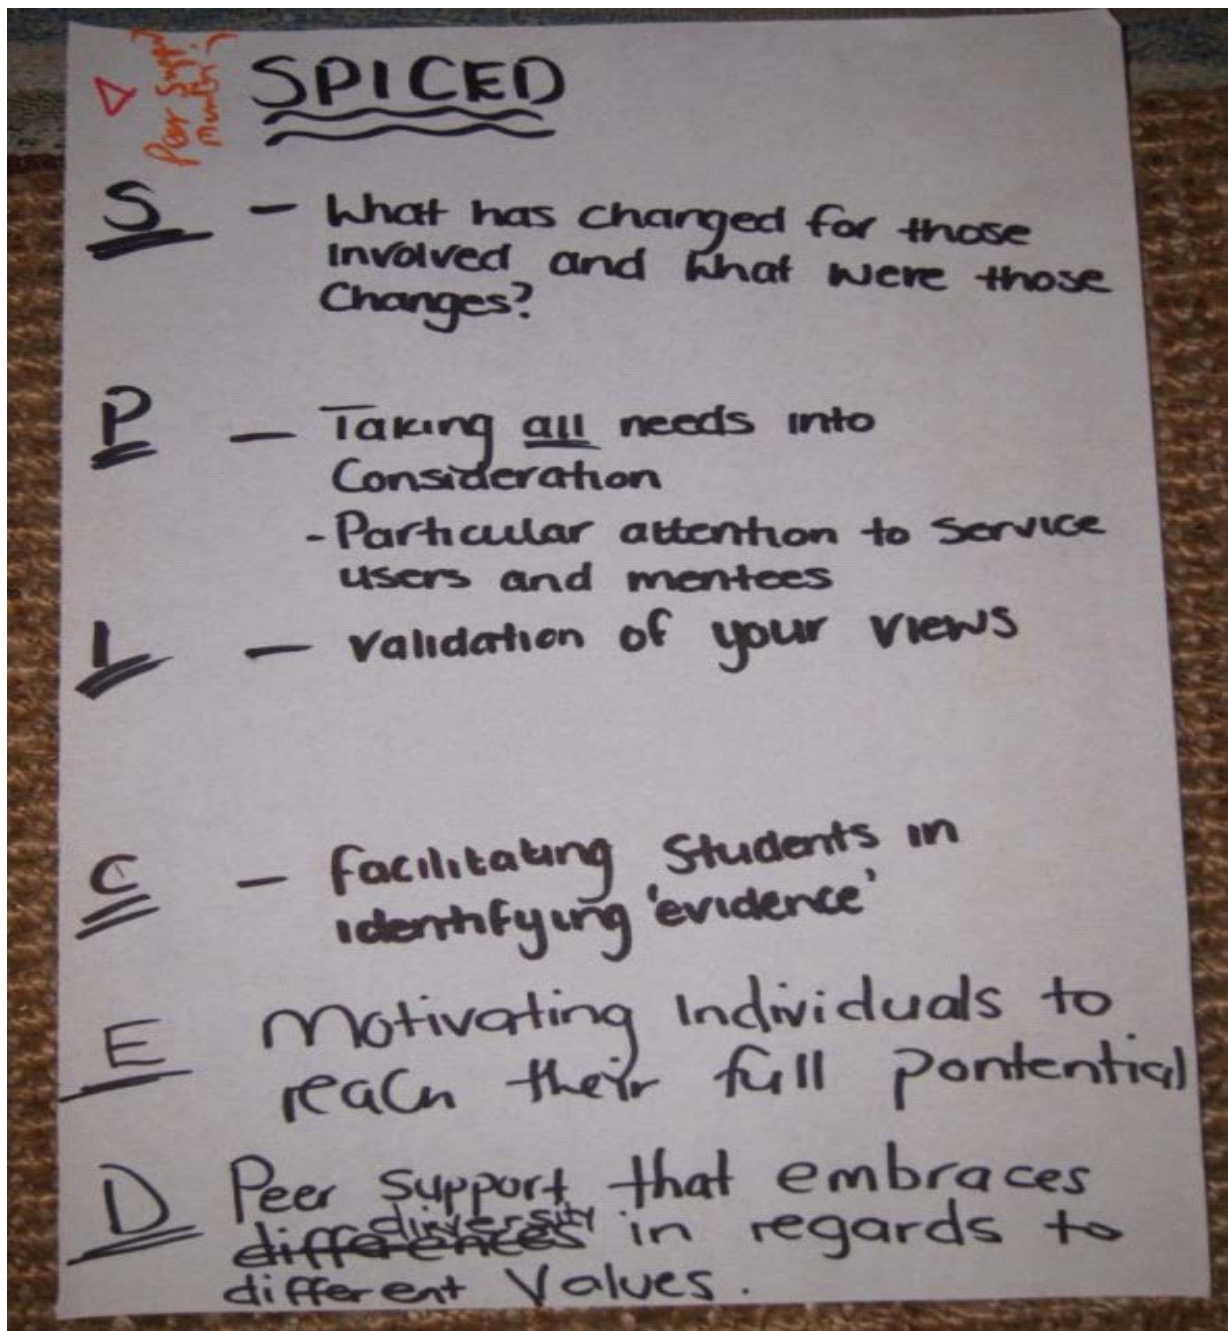 Peer Support
SPICED
S - What has changed for those
involved and what were those
Changes?
P - Taking all needs into
Consideration
- Particular attention to Service
users and mentees
I - Validation of your views
C - facilitating Students in
identifying 'evidence'
E Motivating Individuals to
reach their full pontential
D Peer support that embraces
differences diversity in regards to
different Values.